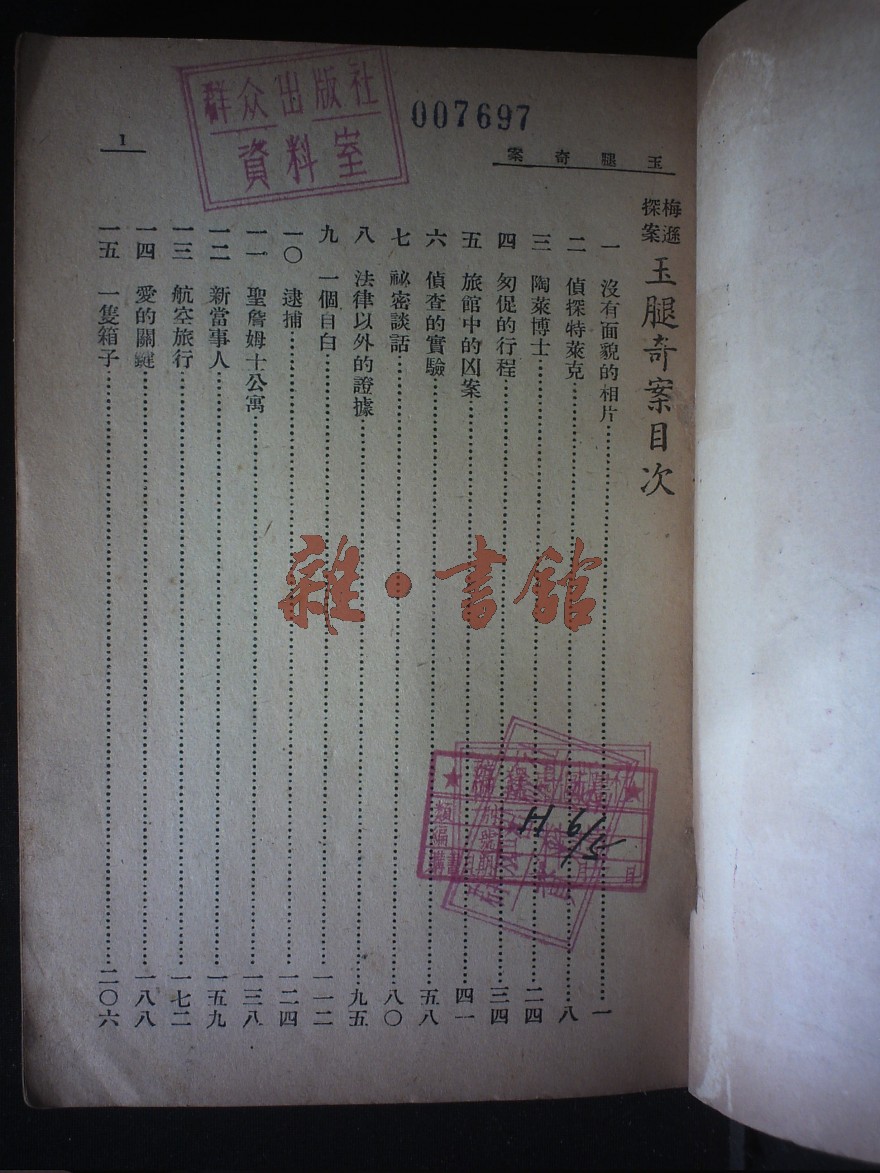 群众出版社
資料室
007697
1
玉腿奇案
梅遜探案 玉腿奇案目次
一 沒有面貌的相片 一
二 偵探特萊克 八
三 陶萊博士 二四
四 匆促的行程 三四
五 旅館中的凶案 四一
六 偵查的實驗 五八
七 祕密談話 八〇
八 法律以外的證據 九五
九 一個自白 一一二
一〇 逮捕 一二四
一一 聖詹姆士公寓 一三八
一二 新當事人 一五九
一三 航空旅行 一七二
一四 愛的關鍵 一八八
一五 一隻箱子 二〇六
雜·書館